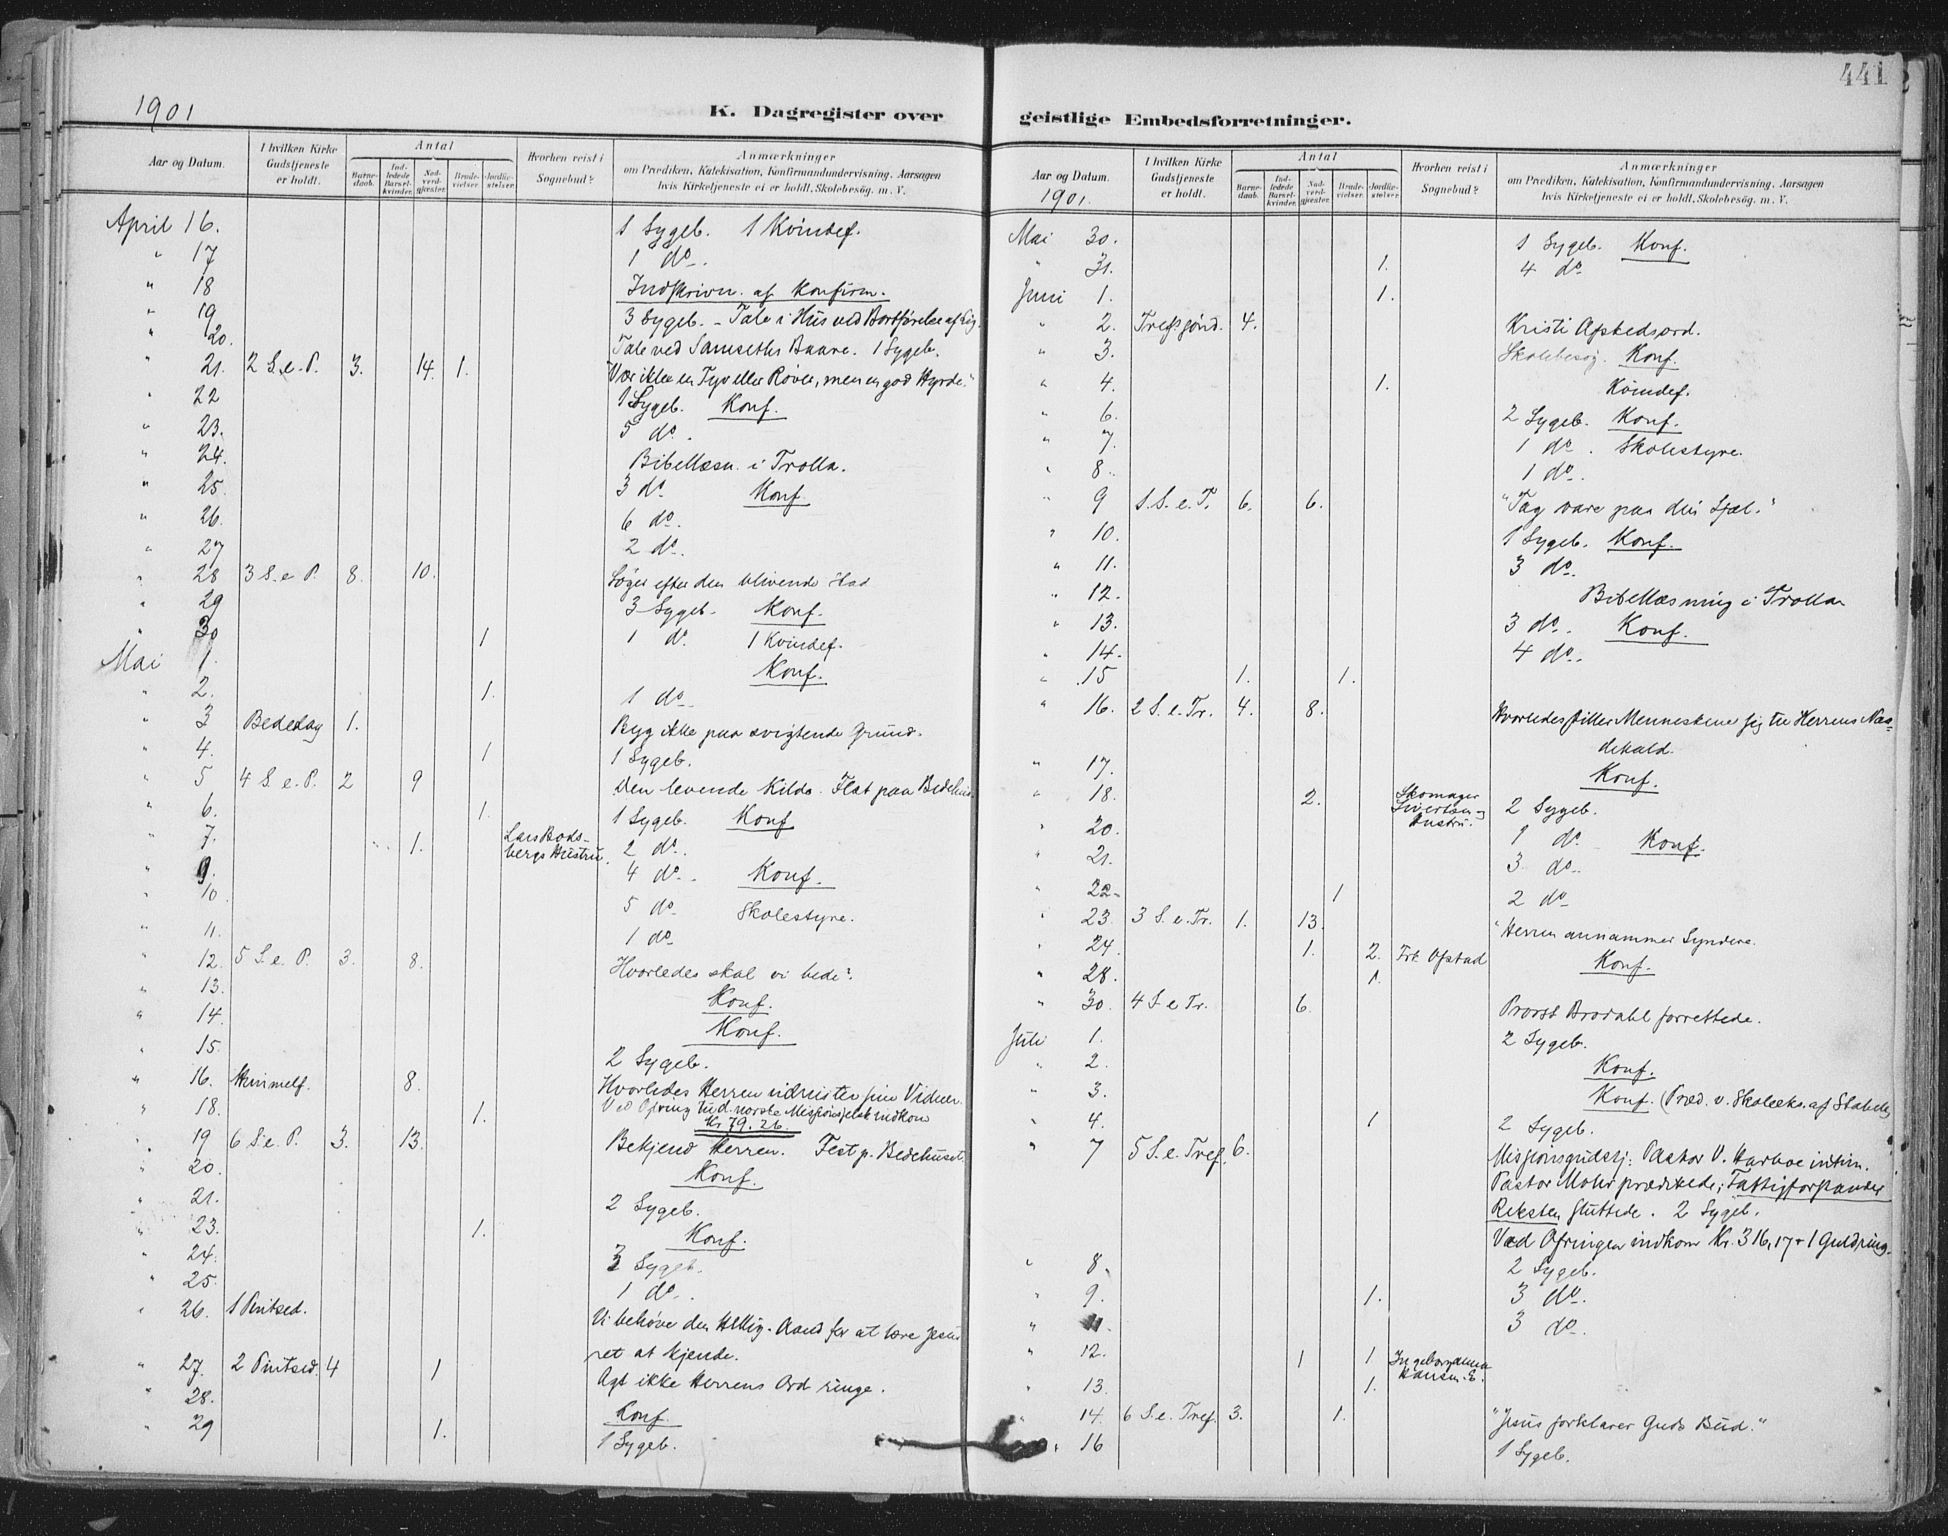 441
1901
K. Dagregister over geistlige Embedsforretninger.
Aar og Datum.
I hvilken Kirke Gudstjeneste er holdt.
Antal
Barnedaab.
Indledede Barselkvinder.
Nadverdgjester.
Brudevielser.
Jordfæstelser.
Hvorhen reist i Sognebud?
Anmærkninger
om Prædiken, Katekisation, Konfirmandundervisning. Aarsagen
hvis Kirketjeneste ei er holdt. Skolebesøg. m. V.
April 16. 1 Sygeb. 1 Kvindef.
" 17 1 do.
" 18 Indskrivn. af Konfirm.
" 19 3 Sygeb. - Tale i Hus ved Bortførelse af Lig.
" 20. Tale ved Samseths Baare. 1 Sygeb.
" 21. 2 S. e. P. 3. 14. 1. "Vær ikke en Tyv eller Røver, men en god Hyrde."
" 22 1 Sygeb. Konf.
" 23. 5 do.
" 24. Bibellæsn. i Trolla.
" 25. 3 do Konf.
" 26. 6 do.
" 27 2 do.
" 28 3 S. e P. 8. 10. Søger efter den blivende Stad
" 29 3 Sygeb. Konf.
" 30 1 1 do. 1 Kvindef.
Mai 1. Konf.
" 2. 1. 1 do.
" 3 Bededag 1. Byg ikke paa svigtende Grund.
" 4. 1 1 Sygeb.
" 5 4 S. e. P. 2 9 Den levende Kilde. Fest paa Bedehus.
" 6. 1. 1 Sygeb. Konf
" 7. 1. Lars Bods-
bergs Hustru. 2 do.
" 9. 4 do. Konf.
" 10 5 do Skolestyre.
" 11. 1 do
" 12. 5 S. e. P. 3. 8. Hvorledes skal vi bede?
" 13. Konf.
" 14. Konf.
" 15. 2 Sygeb.
" 16. Himmelf. 8. Hvorledes Herren udruster sine Vidner.
Ved Ofring til d. norske Missionsselsk indkom
Kr 79.26.
" 18. 1.
" 19 6 S. e. P. 3. 13. Bekjend Herren. Fest p. Bedehuset.
" 20. Konf.
" 21. 2 Sygeb.
" 23. 1. Konf.
" 24. 3 Sygeb.
" 25. 1 do.
" 26. 1 Pintsed. Vi behøve den Hellig-Aand for at lære Jesus
ret at kjende.
" 27. 2 Pintsed. 4 1 Agt ikke Herrens Ord ringe.
" 28. Konf.
" 29 1. 1 Sygeb.
Aar og Datum.
1901.
I hvilken Kirke Gudstjeneste er holdt.
Antal
Barnedaab.
Indledede Barselkvinder.
Nadverdgjester.
Brudevielser.
Jordfæstelser.
Hvorhen reist i Sognebud?
Anmærkninger
om Prædiken, Katekisation, Konfirmandundervisning. Aarsagen
hvis Kirketjeneste ei er holdt. Skolebesøg. m. V.
Mai 30. 1 Sygeb. Konf.
" 31. 1. 4 do
Juni 1. 1.
" 2. Trefsønd. 4. Kristi Afskedsord.
" 3. Skolebesøg. Konf.
" 4. 1. Kvindef.
" 6. 2 Sygeb. Konf.
" 7. 1 do. Skolestyre.
" 8. 1 do.
" 9 1. S. e. T. 6. 6. "Tag vare paa din Sjæl."
" 10. 1 Sygeb. Konf.
" 11. 3 do.
" 12. Bibellæsning i Trolla
" 13. 3 do. Konf.
" 14. 4 do.
" 15 1. 1.
" 16. 2 S. e. Tr. 4. 8. Hvorledes stiller Menneskene sig til Herrens Naa-
dekald.
" 17. Konf.
" 18. 2. Skomager
Sivertsens
Hustru. 2 Sygeb.
" 20. 1 do. Konf.
" 21. 3 do.
" 22. 1 2 do
" 23. 3 S. e. Tr. 1. 13. "Herren annammer Syndere.
" 24. 1. 2. Frk Ofstad Konf.
" 28. 1.
" 30. 4 S e Tr. 6. Provst Brodahl forrettede.
Juli 1. 2 Sygeb.
" 2. Konf.
" 3. Konf. (Præd. v. Skoleeks. af Stabel)
" 4. 1 2 Sygeb.
" 7 5 S. e. Tref. 6. Missionsgudstj: Pastor V. Harboe intim.
Pastor Mohr prædikede; Fattigforstander
Reksten sluttede. 2 Sygeb.
Ved Ofringen indkom Kr. 316,17 + 1 Guldring.
" 8. 2 Sygeb.
" 9. 1. 3 do.
" 11. 3 do.
" 12. 1 1 Ingeborganna
Hansen. E.
" 13. 1.
" 14. 6 S. e. Tref. 3. 1. "Jesus forklarer Guds Bud."
" 16 1 Sygeb.